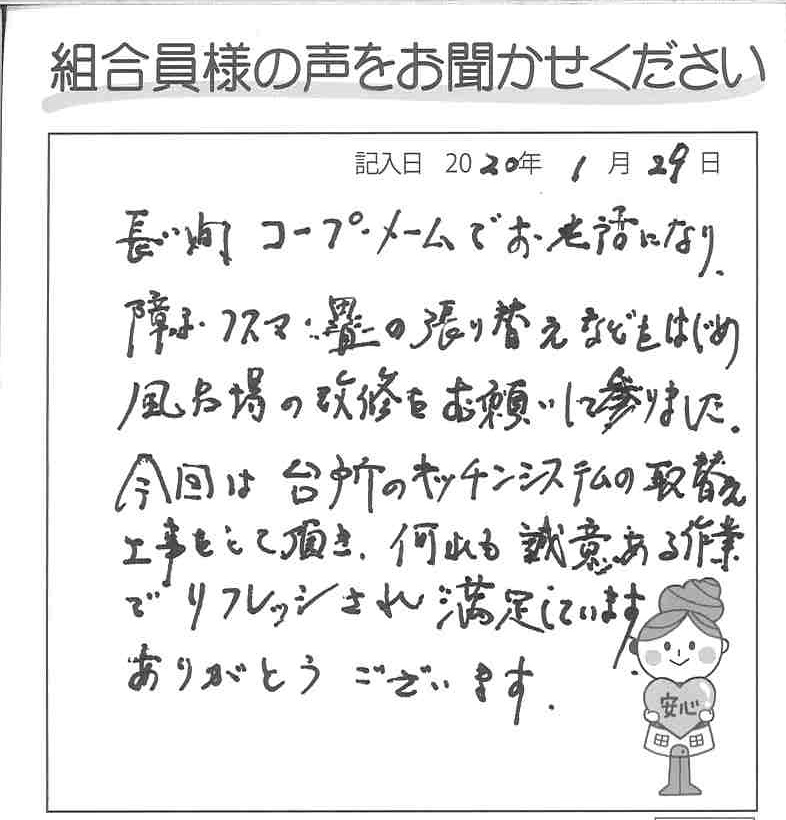 組合員様の声をお聞かせください
記入日 2020年 1月 29日
長い間 コープ・メームでお世話になり、
障子・フスマ・畳の張り替えなどもはじめ
風呂場の改修をお願いして参りました。
今回は 台所のキッチンシステムの取替え
工事をして頂き、何れも誠意ある作業
でリフレッシされ満足しています。
ありがとうございます.
安心